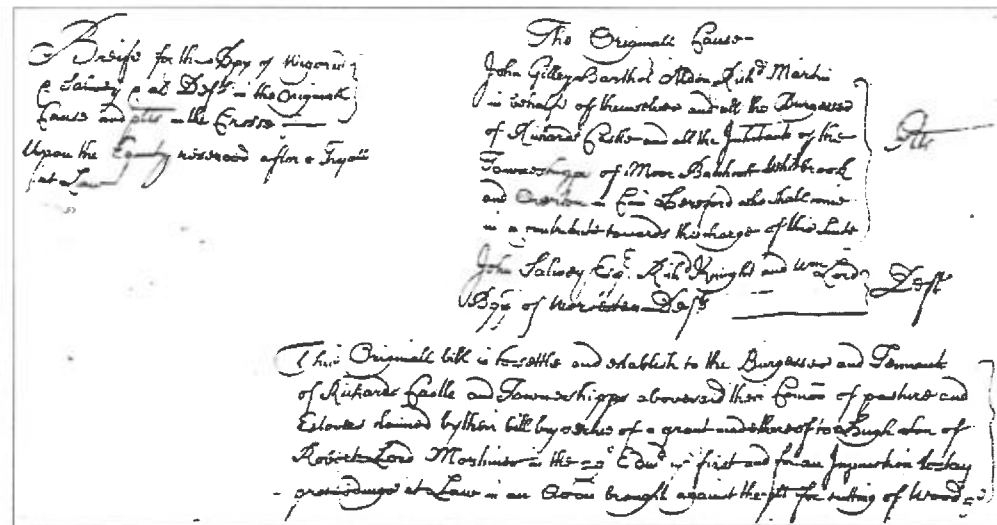 Breife for the Bpp of Wigorn
& Salwey at Defts in the Originall
Cause and plts in the Crosse
Upon the Equity reserved after a Tryall
at Law
The Originall Cause
John Gilley Barthol Alden Rich^d Martin
in behalfe of themselves and all the Burgesses
of Richards Castle and all the Inhitants of the
Towneshipps of Moor Batchcot Whitbrook
and Overton in Com Hereford who shall come
in & contribute towards the charge of this Suite
Plts
John Salwey Esq^r. Rich^d Knight and W^m Lord
Bpp of Worcester Defts
Defts
This Originall bill is to settle and establish to the Burgesses and Tennants
of Richards Castle and Towneshipps abovesaid their Comon of pasture and
Estovers claimed by their bill by vertue of a grant made thereof to Hugh son of
Robert Lord Mortimer in the Edw^d y^e first and for an Injunction to stay
proceedings at Law in an Accon brought against the plt for cutting of Wood